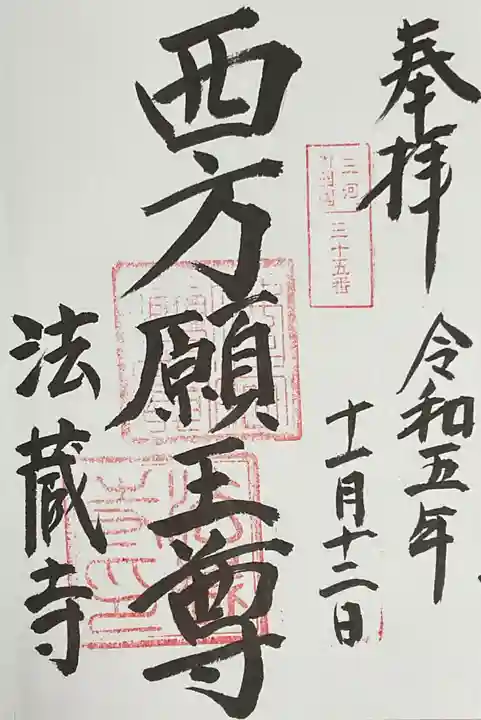 奉拝
令和五年
十一月十二日
三河
三十五番
西方願王尊
法蔵寺